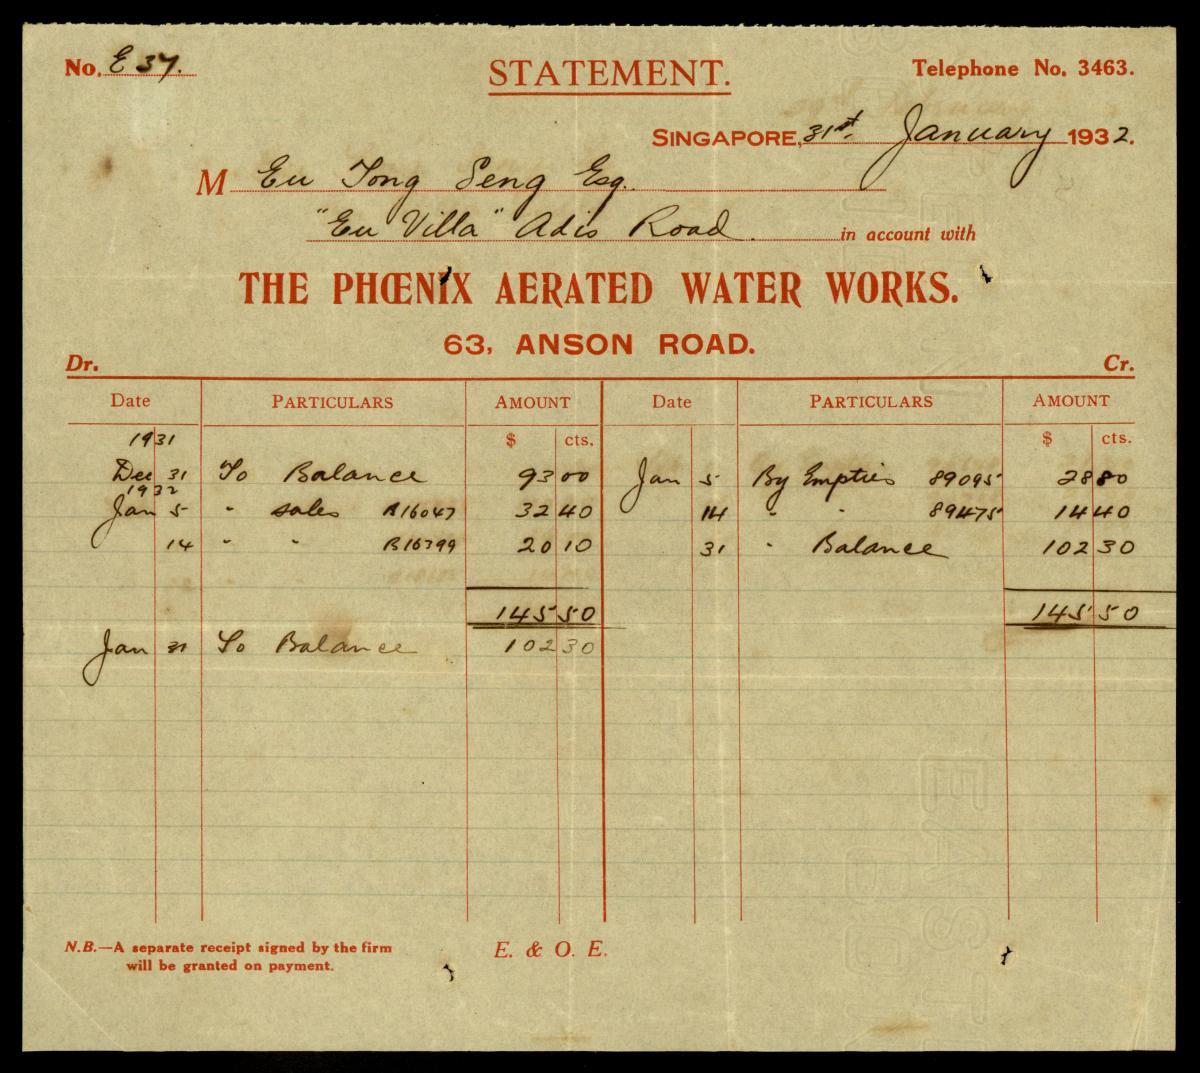 No. E 37.
STATEMENT.
Telephone No. 3463.
SINGAPORE, 31st. January 1932.
M Eu Tong Seng Esq.
"Eu Villa" Adis Road.
in account with
THE PHŒNIX AERATED WATER WORKS.
63, ANSON ROAD.
Dr. Cr.
Date PARTICULARS AMOUNT Date PARTICULARS AMOUNT
1931 $ cts. $ cts.
Dec 31 To Balance 93 00 Jan 5 By Empties 89095 28 80
1932
Jan 5 " sales B16047 32 40 14 " " 89475 14 40
14 " " B16399 20 10 31 " Balance 102 30
145 50 145 50
Jan 31 To Balance 102 30
N.B.—A separate receipt signed by the firm
will be granted on payment.
E. & O. E.